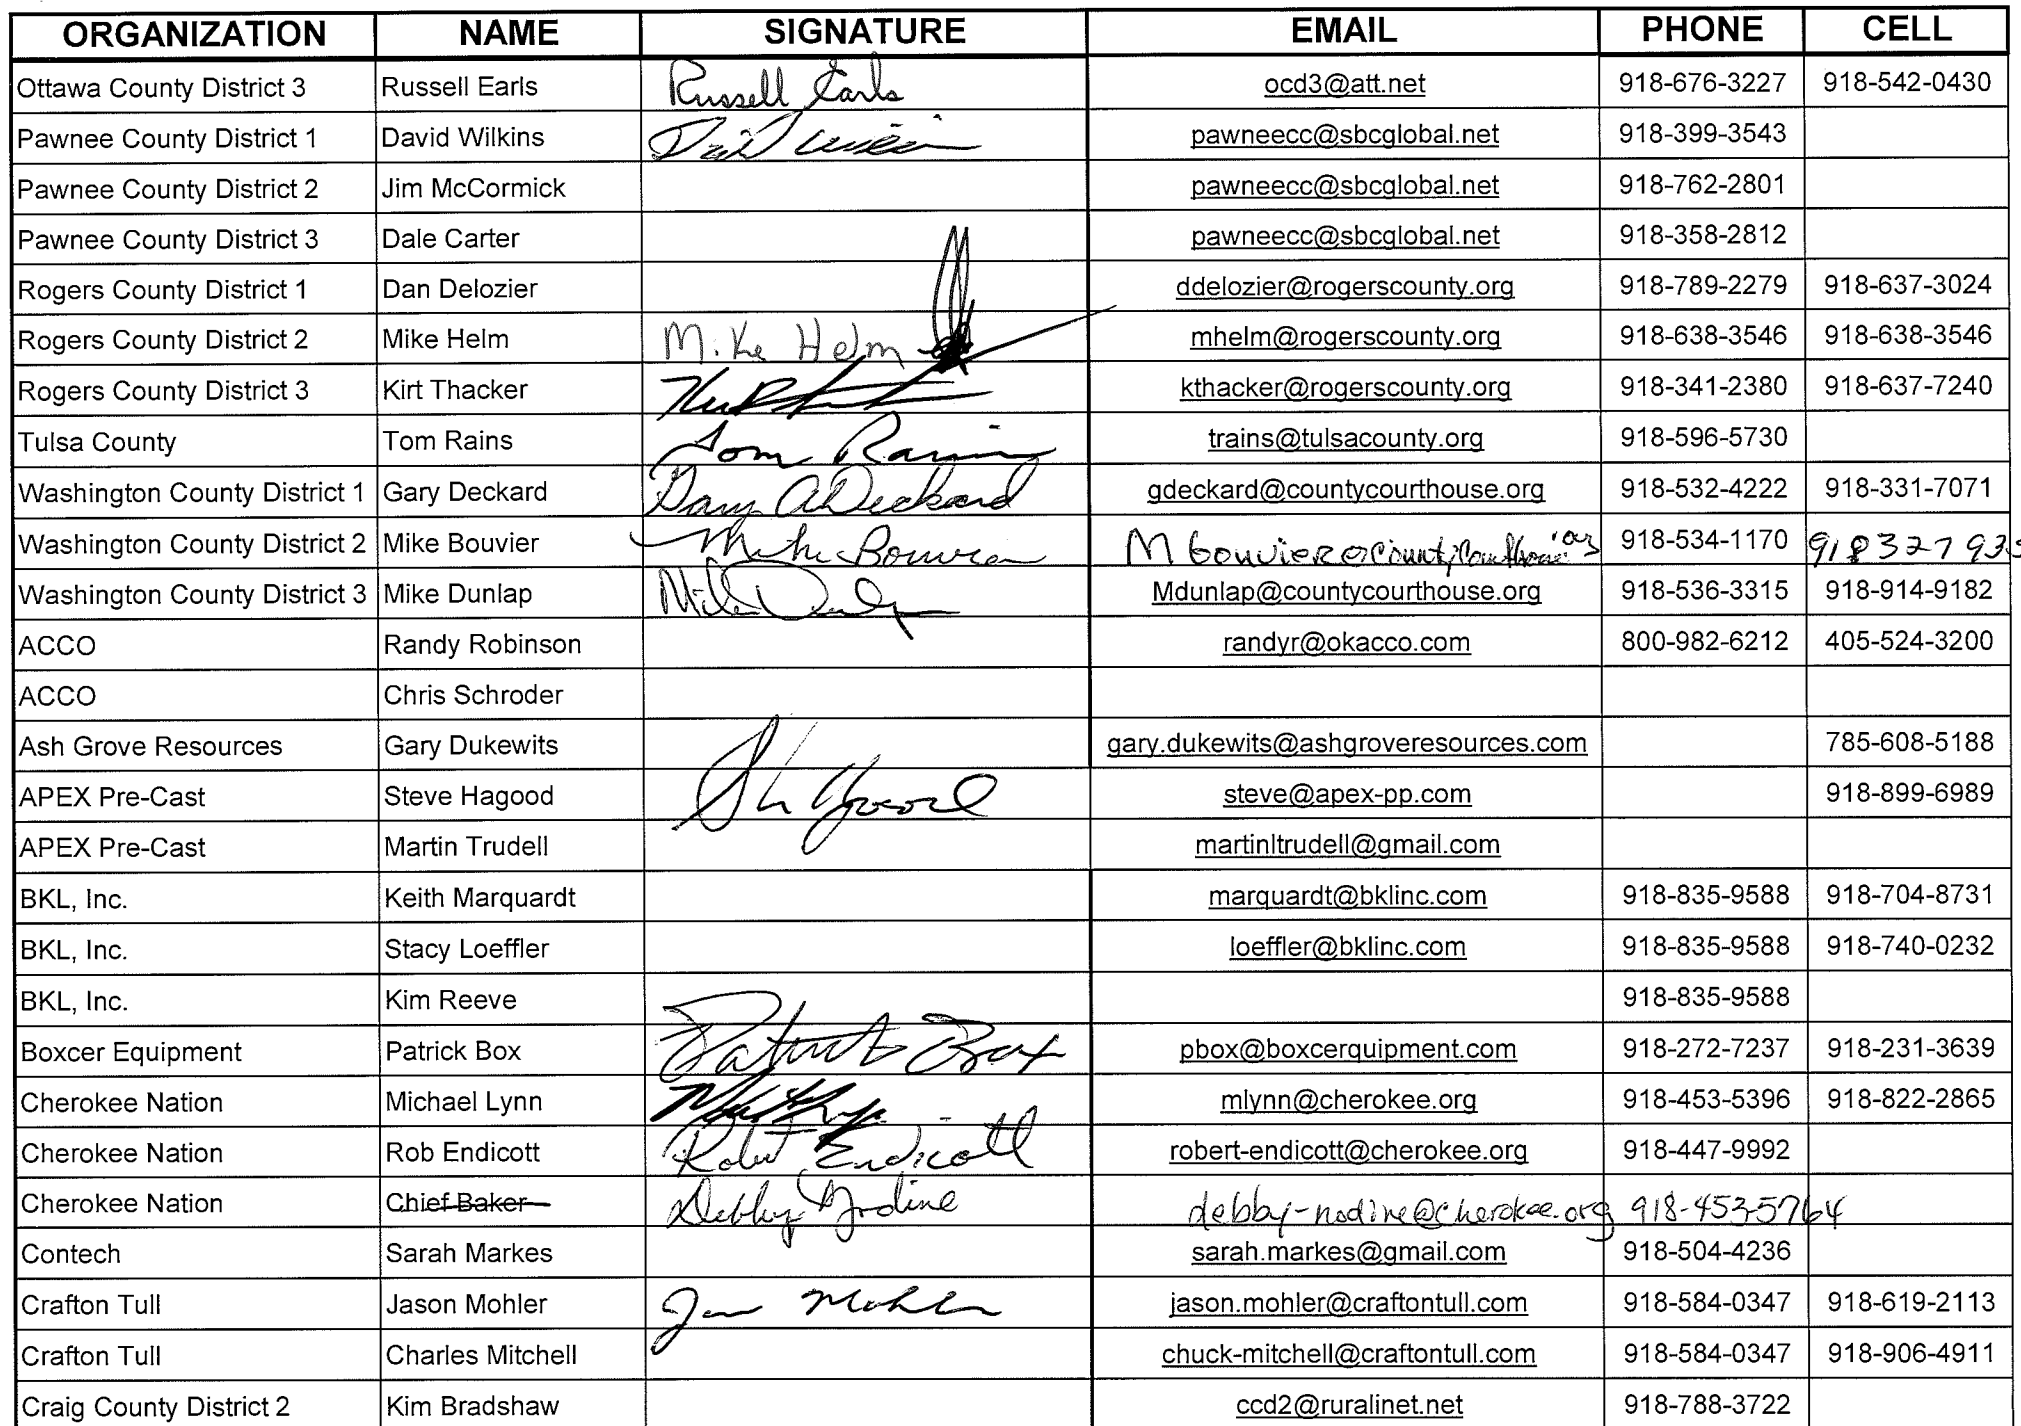 ORGANIZATION NAME SIGNATURE EMAIL PHONE CELL
Ottawa County District 3 Russell Earls Russell Earls ocd3@att.net 918-676-3227 918-542-0430
Pawnee County District 1 David Wilkins David Wilkins pawneecc@sbcglobal.net 918-399-3543
Pawnee County District 2 Jim McCormick pawneecc@sbcglobal.net 918-762-2801
Pawnee County District 3 Dale Carter pawneecc@sbcglobal.net 918-358-2812
Rogers County District 1 Dan Delozier ddelozier@rogerscounty.org 918-789-2279 918-637-3024
Rogers County District 2 Mike Helm Mike Helm mhelm@rogerscounty.org 918-638-3546 918-638-3546
Rogers County District 3 Kirt Thacker kthacker@rogerscounty.org 918-341-2380 918-637-7240
Tulsa County Tom Rains Tom Rains trains@tulsacounty.org 918-596-5730
Washington County District 1 Gary Deckard Gary A Deckard gdeckard@countycourthouse.org 918-532-4222 918-331-7071
Washington County District 2 Mike Bouvier Mike Bouvier Mbouvier@countycourthouse.org 918-534-1170 918 327 935
Washington County District 3 Mike Dunlap Mike Dunlap Mdunlap@countycourthouse.org 918-536-3315 918-914-9182
ACCO Randy Robinson randyr@okacco.com 800-982-6212 405-524-3200
ACCO Chris Schroder
Ash Grove Resources Gary Dukewits gary.dukewits@ashgroveresources.com 785-608-5188
APEX Pre-Cast Steve Hagood St Hagood steve@apex-pp.com 918-899-6989
APEX Pre-Cast Martin Trudell martinltrudell@gmail.com
BKL, Inc. Keith Marquardt marquardt@bklinc.com 918-835-9588 918-704-8731
BKL, Inc. Stacy Loeffler loeffler@bklinc.com 918-835-9588 918-740-0232
BKL, Inc. Kim Reeve 918-835-9588
Boxcer Equipment Patrick Box Patrick Box pbox@boxcerquipment.com 918-272-7237 918-231-3639
Cherokee Nation Michael Lynn mlynn@cherokee.org 918-453-5396 918-822-2865
Cherokee Nation Rob Endicott Robert Endicott robert-endicott@cherokee.org 918-447-9992
Cherokee Nation Chief Baker Debby Nodine debby-nodine@cherokee.org 918-453-5764
Contech Sarah Markes sarah.markes@gmail.com 918-504-4236
Crafton Tull Jason Mohler Jason Mohler jason.mohler@craftontull.com 918-584-0347 918-619-2113
Crafton Tull Charles Mitchell chuck-mitchell@craftontull.com 918-584-0347 918-906-4911
Craig County District 2 Kim Bradshaw ccd2@ruralinet.net 918-788-3722